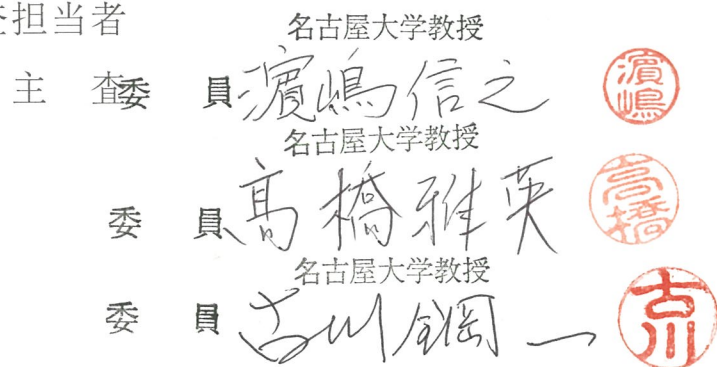 査担当者
名古屋大学教授
主 査委 員 濵嶋信之 濵嶋
名古屋大学教授
委 員 髙橋雅英 高橋
名古屋大学教授
委 員 古川鋼一 古川